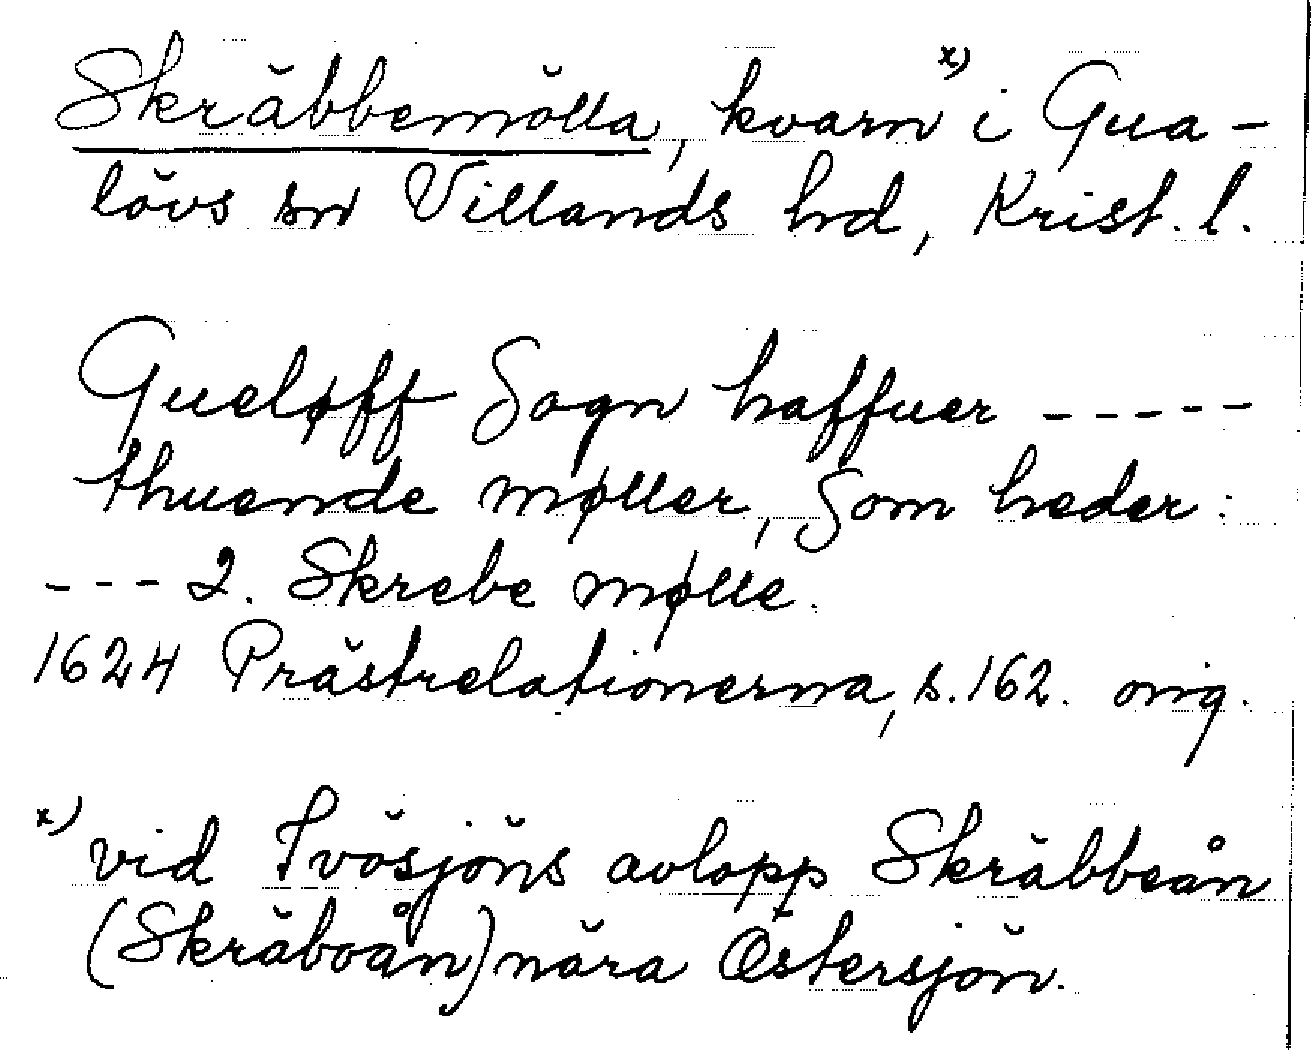 Skräbbemölla, kvarn x) i Gua-
lövs sn Villands hd, Krist. l.
Gueløff Sogn haffuer -----
thuende møller, Som heder:
--- 2. Skrebe mølle.
1624 Prästrelationerna, s. 162. orig.
x) vid Ivösjöns avlopp Skräbbeån
(Skräboån) nära Östersjön.